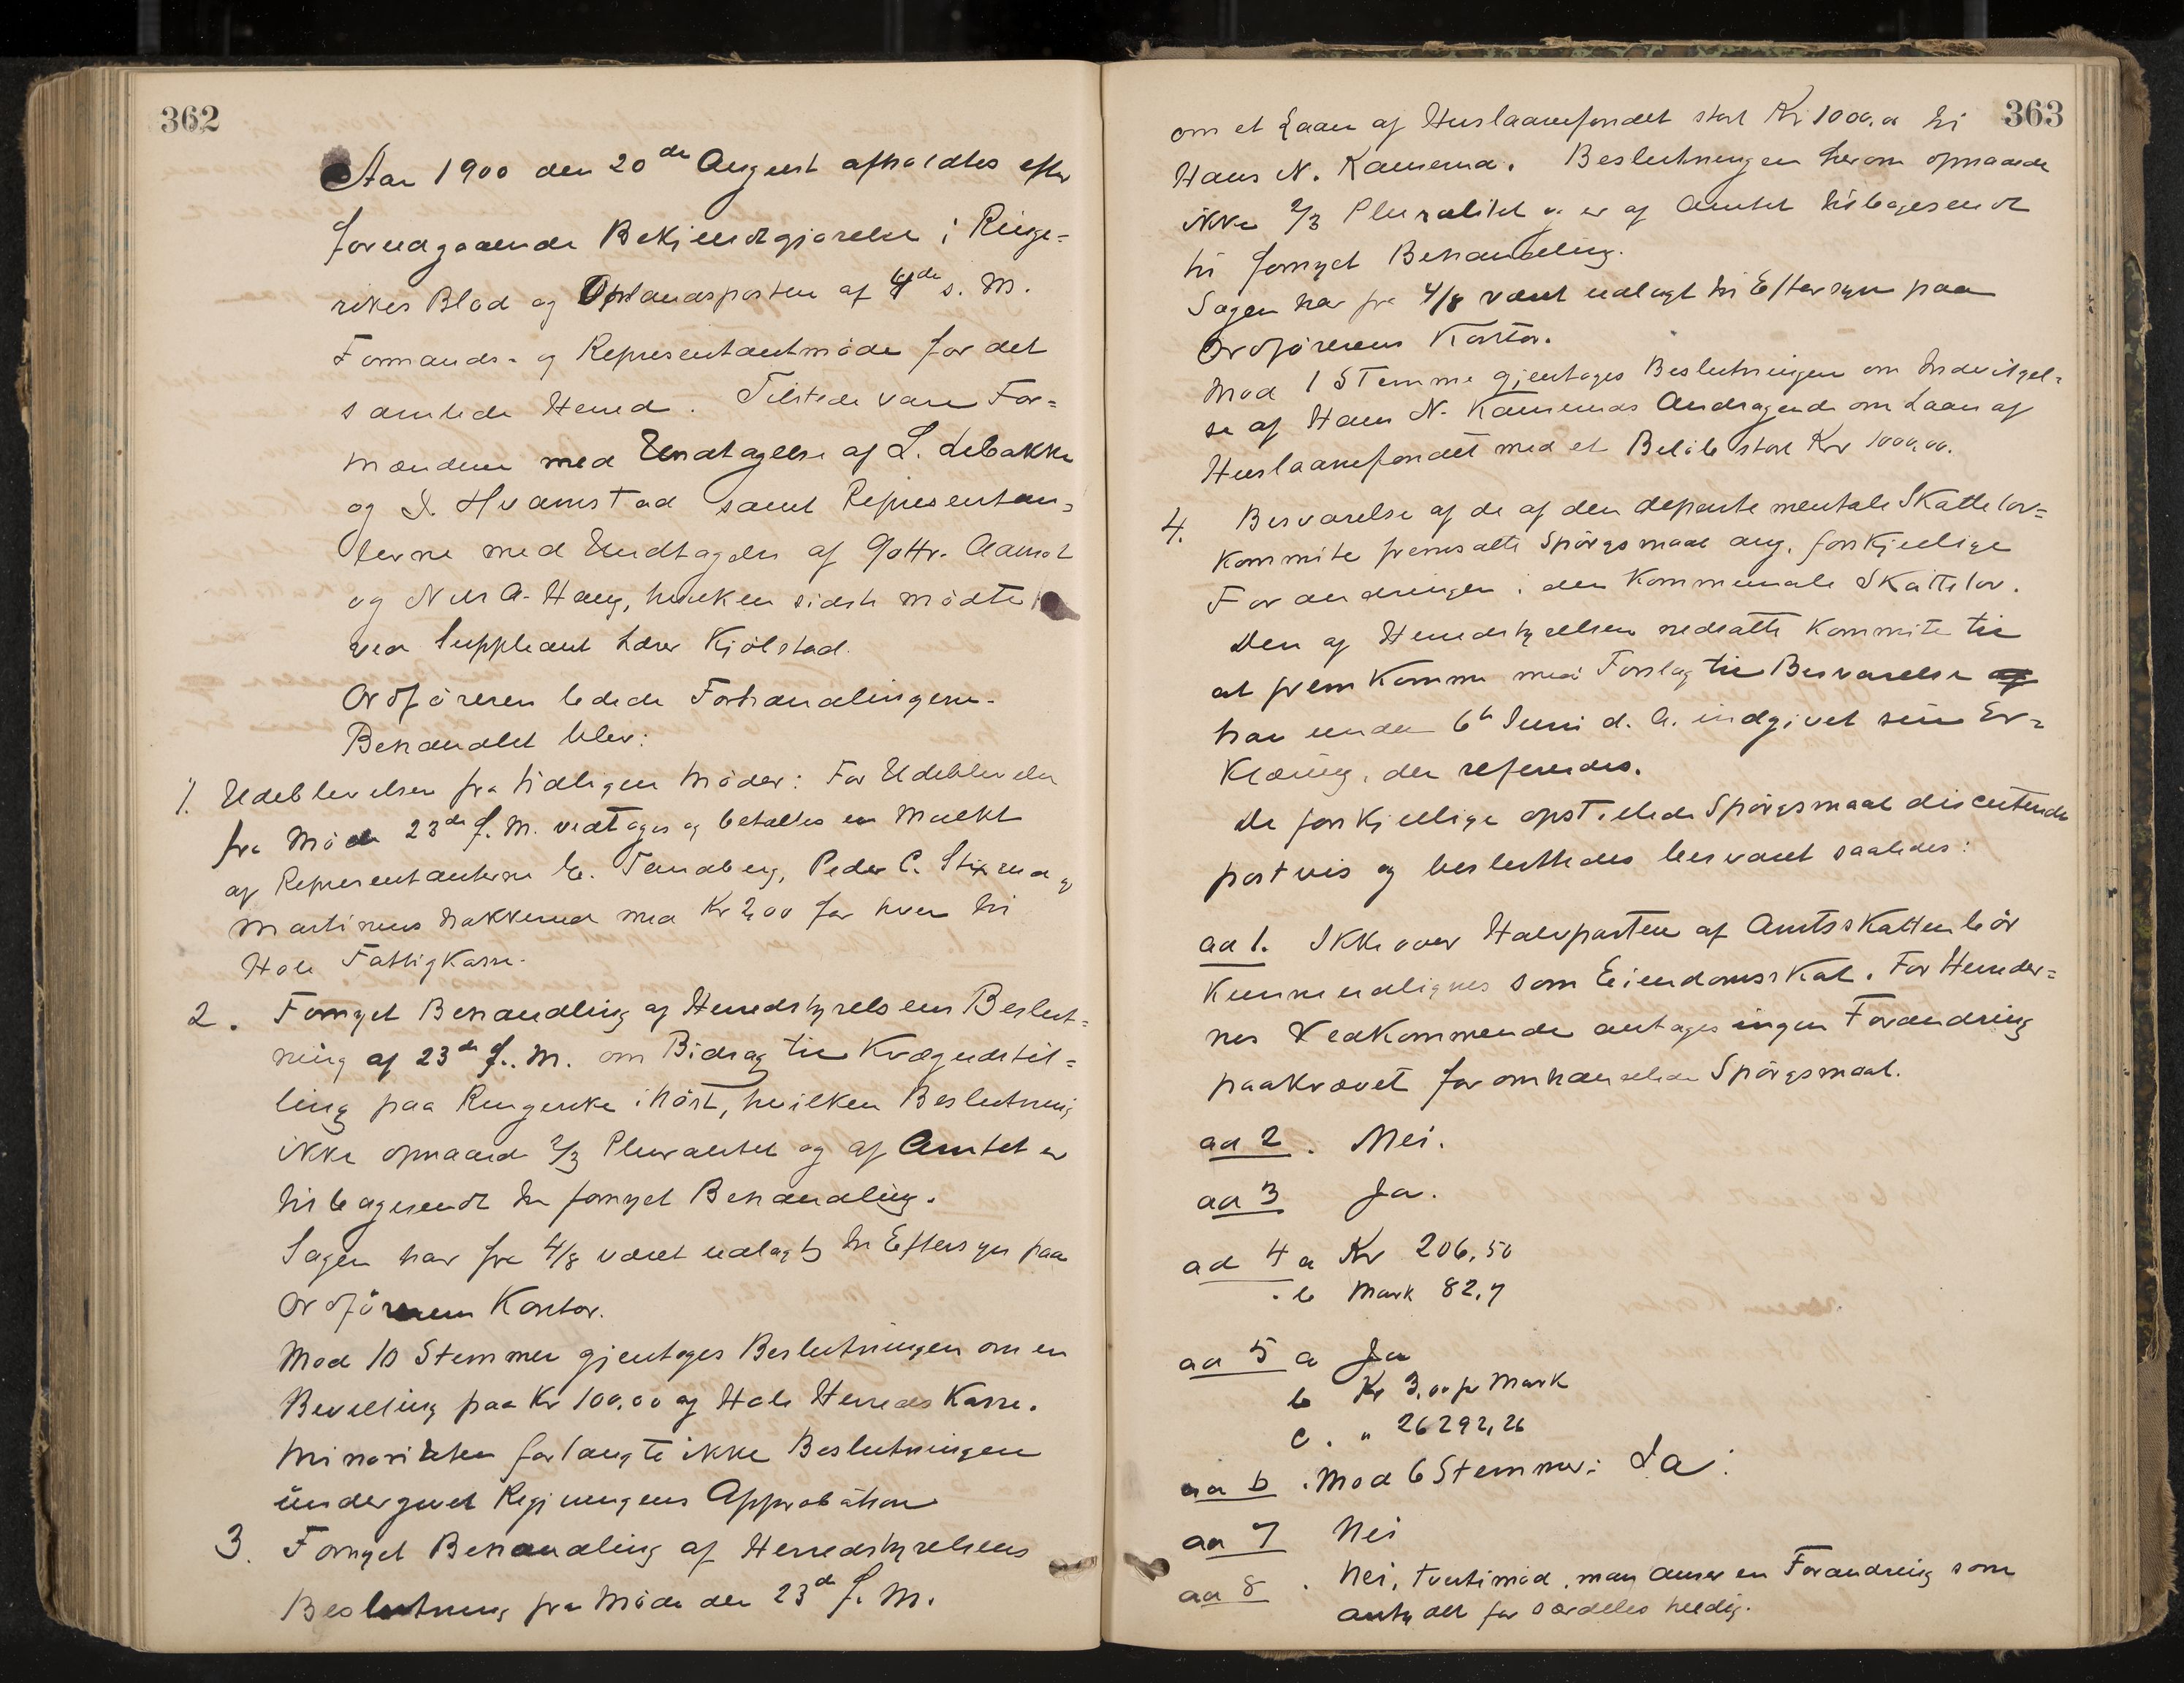 362
Aar 1900 den 20de August afholdtes efter
forudgaaende Bekjendtgjørelse i Ringe=
rikes Blad og Oplandsposten af 4de s. M.
Formands- og Representantmøde for det
samlede Herred. Tilstede vare For=
mændene med Undtagelse af L. Libakke
og I. Hvamstad samt Representan=
terne med Undtagelse af Gottr. Aamot
og Nils A. Haug, hvilken sidste mødte
ved Suppleant Lærer Kjølstad.
Ordføreren ledede Forhandlingerne.
Behandlet blev:
1. Udeblevelser fra tidligere Møder: For Udeblevelse
fra Møde 23de f. M. vedtoges og betaltes en Mulkt
af Representanterne E. Tandberg, Peder C. Stixrud og
Martinius Nakkerud med Kr 2,00 for hver til
Hole Fattigkasse.
2. Fornyet Behandling af Herredstyrelsens Beslut=
ning af 23de f. M. om Bidrag til Kvægudstil=
ling paa Ringerike i Høst, hvilken Beslutning
ikke opnaaede 2/3 Pluralitet og af Amtet er
tilbagesendt til fornyet Behandling.
Sagen har fra 4/8 været udlagt til Eftersyn paa
Ordførerens Kontor.
Mod 10 Stemmer gjentoges Beslutningen om en
Bevilling paa Kr 100,00 af Hole Herreds Kasse.
Minoriteten forlangte ikke Beslutningen
undergivet Regjeringens Approbation
3. Fornyet Behandling af Herredstyrelsens
Beslutning fra Møde den 23de f. M.
363
om et Laan af Huslaanefondet stort Kr 1000,00 til
Hans N. Kamerud. Beslutningen herom opnaaede
ikke 2/3 Pluralitet og er af Amtet tilbagesendt
til fornyet Behandling.
Sagen har fra 4/8 været udlagt til Eftersyn paa
Ordførerens Kontor.
Mod 1 Stemme gjentoges Beslutningen om Indvilgel=
se af Hans N. Kameruds Andragende om Laan af
Huslaanefondet med et Beløb stort Kr 1000,00.
4. Besvarelse af de af den departementale Skattelov=
kommite fremsatte Spørgsmaal ang. forskjellige
Forandringer i den kommunale Skattelov.
Den af Herredstyrelsen nedsatte Kommite til
at fremkomme med Forslag til Besvarelse
har under 6te Juni d. A. indgivet sin Er=
klæring, der refereredes.
De forskjellige opstillede Spørgsmaal discuteredes
postvis og besluttedes besvaret saaledes:
ad 1. Ikke over Halvparten af Amtsskatten bør
kunne udlignes som Eiendomsskat. For Herreder=
nes Vedkommende antages ingen Forandring
paakrævet for omhandlede Spørgsmaal.
ad 2. Nei.
ad 3 Ja.
ad 4 a Kr 206,50
. b Mark 82,7
ad 5 a Ja
b Kr 3,00 pr Mark
c. " 26292,26
ad 6. Mod 6 Stemmer: Ja.
ad 7 Nei
ad 8. Nei, tvertimod, man anser en Forandring som
antydet for særdeles heldig.